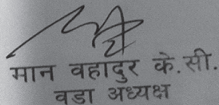 मान वहादुर के.सी.
वडा अध्यक्ष